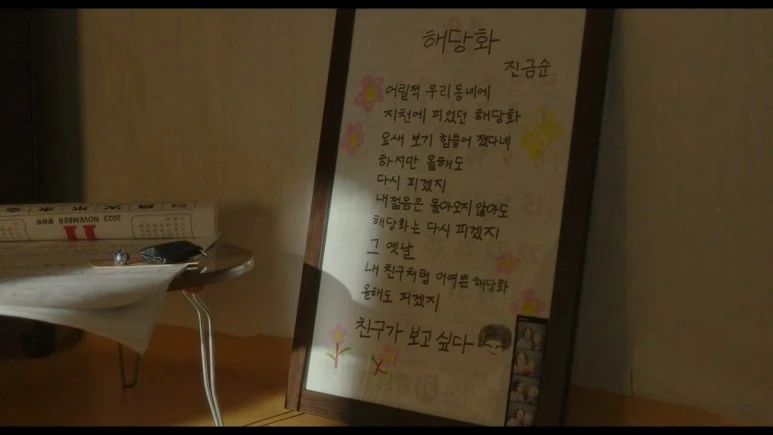 해당화
진금순
어릴적 우리동네에
지천에 피었던 해당화
요새 보기 힘들어 졌다네
하지만 올해도
다시 피겠지
내 젊음은 돌아오지 않아도
해당화는 다시 피겠지
그 옛날
내 친구처럼 어여쁜 해당화
올해도 피겠지
친구가 보고싶다
2023 NOVEMBER
11